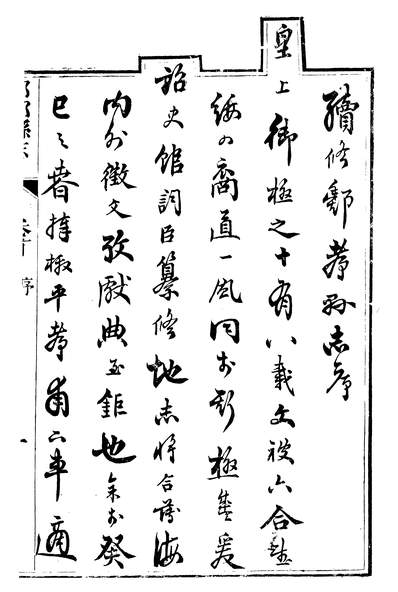 續修縣志序
皇上御極之十有八載文被六合聲
綏四裔道一風同於斯極盛爰
詔史館詞臣纂修地志將合薄海
內外徵文攷獻典至鉅也余於癸
巳之春捧檄平甫二年適
縣志 序